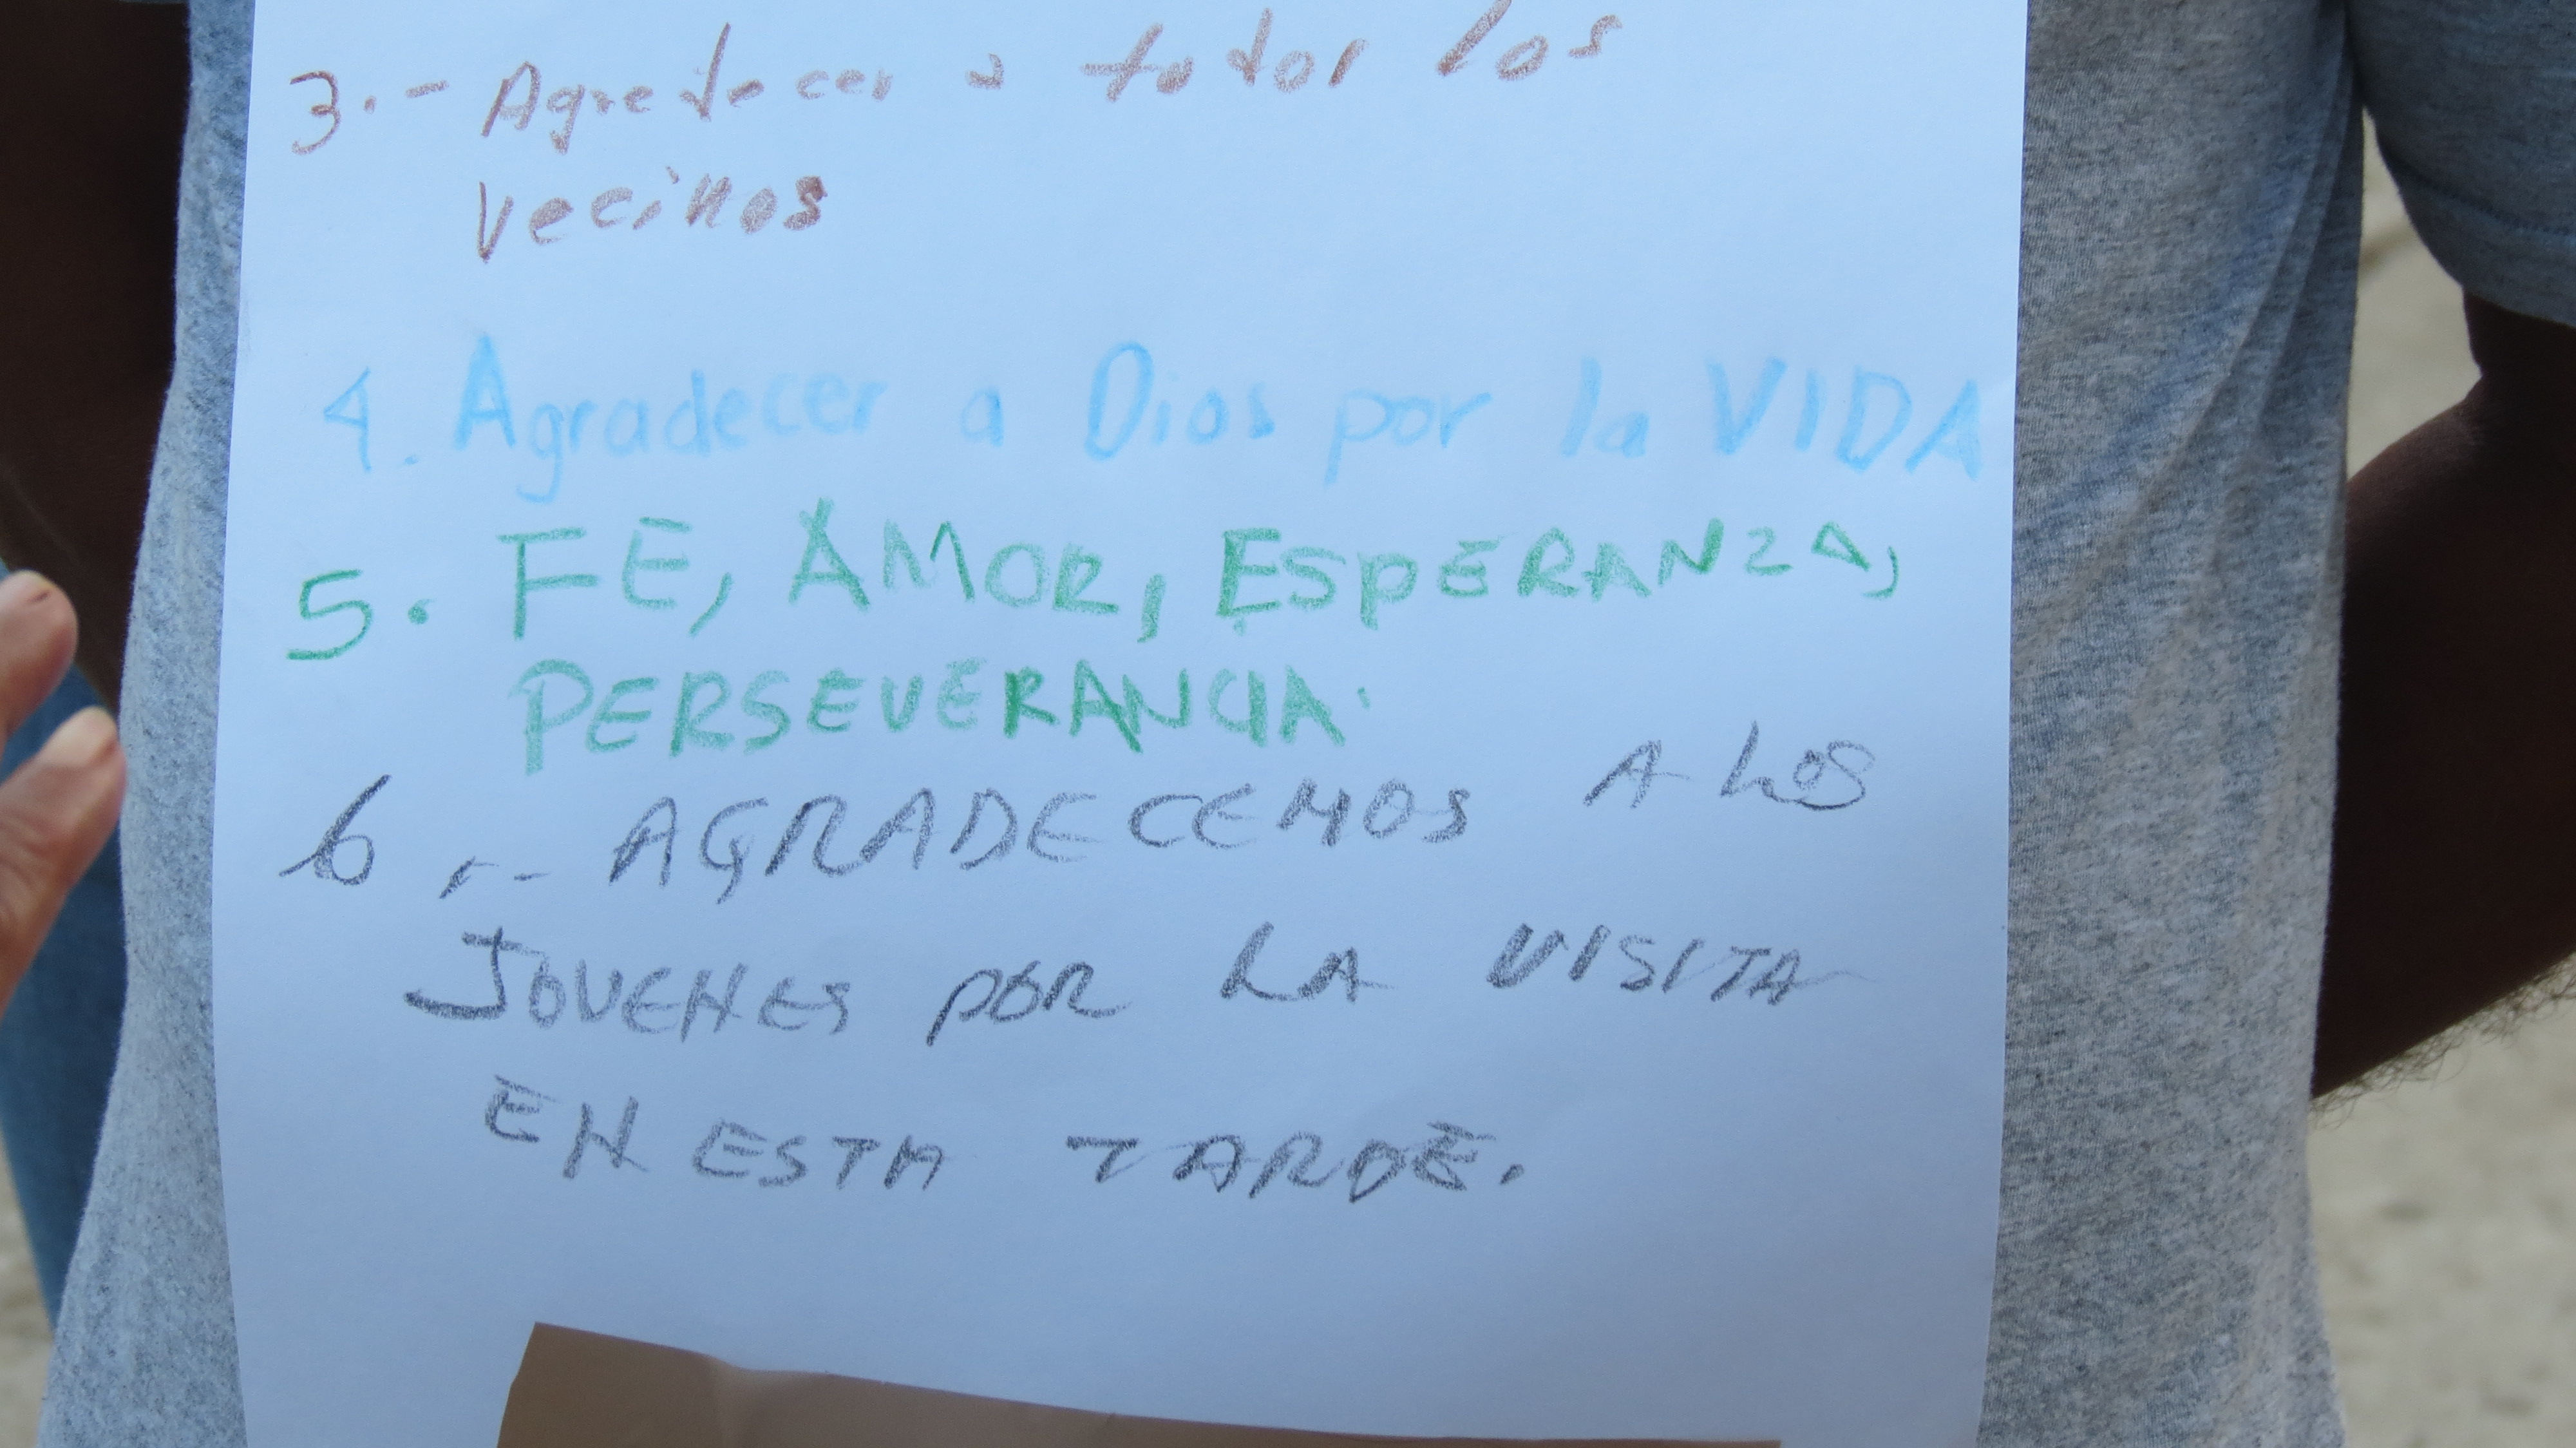 3.- Agradecer a todos los
vecinos
4. Agradecer a Dios por la VIDA
5. FE, AMOR, ESPERANZA,
PERSEVERANCIA.
6.- AGRADECEMOS A LOS
JOVENES POR LA VISITA
EN ESTA TARDE.